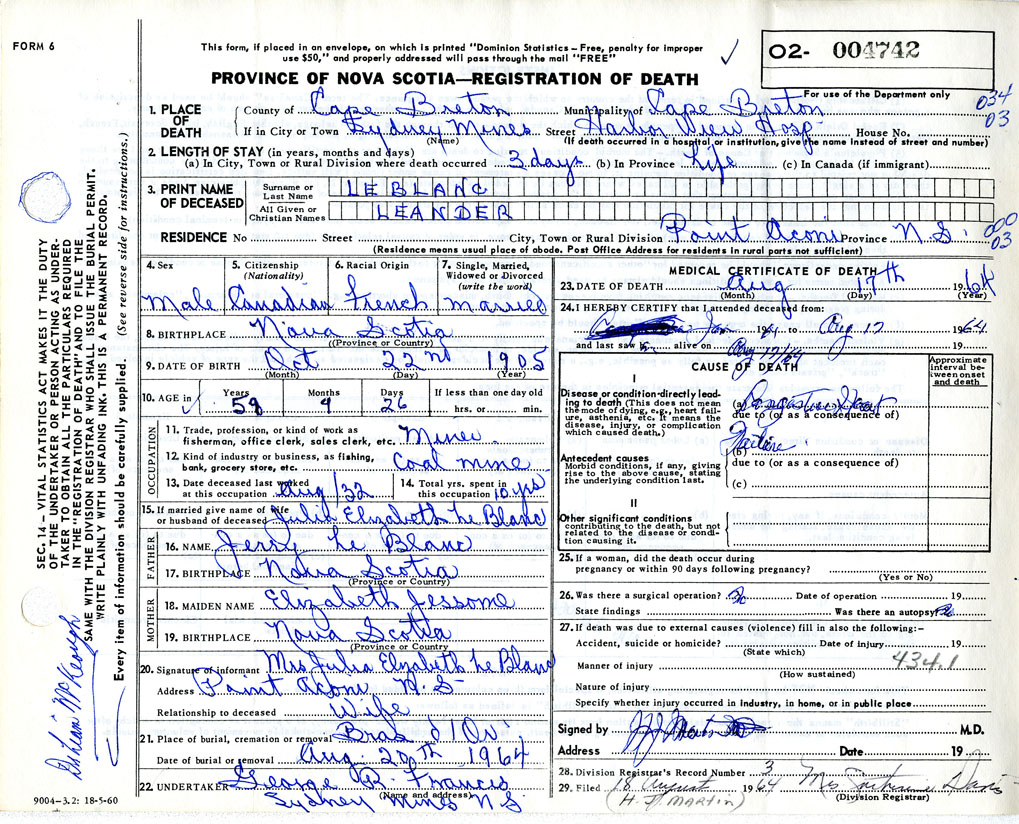 FORM 6
This form, if placed in an envelope, on which is printed "Dominion Statistics – Free, penalty for improper
use $50," and properly addressed will pass through the mail "FREE"
✓
02- 004742
PROVINCE OF NOVA SCOTIA—REGISTRATION OF DEATH
For use of the Department only
034
03
1. PLACE OF DEATH
County of Cape Breton Municipality of Cape Breton
If in City or Town Sydney Mines Street Harbor View Hosp House No.
(Name) (If death occurred in a hospital or institution, give the name instead of street and number)
2. LENGTH OF STAY (in years, months and days)
(a) In City, Town or Rural Division where death occurred 3 days (b) In Province Life (c) In Canada (if immigrant)
3. PRINT NAME OF DECEASED
Surname or Last Name LE BLANC
All Given or Christian Names LEANDER
RESIDENCE No Street City, Town or Rural Division Point Aconi Province N.S.
000
03
(Residence means usual place of abode. Post Office Address for residents in rural parts not sufficient)
4. Sex Male
5. Citizenship (Nationality) Canadian
6. Racial Origin French
7. Single, Married, Widowed or Divorced (write the word) married
8. BIRTHPLACE Nova Scotia
(Province or Country)
9. DATE OF BIRTH Oct 22nd 1905
(Month) (Day) (Year)
10. AGE in ✓ Years 58 Months 9 Days 26 If less than one day old hrs. or min.
OCCUPATION
11. Trade, profession, or kind of work as
fisherman, office clerk, sales clerk, etc. Miner
12. Kind of industry or business, as fishing,
bank, grocery store, etc. Coal mine
13. Date deceased last worked
at this occupation Aug/32
14. Total yrs. spent in
this occupation 10 yrs
15. If married give name of wife
or husband of deceased Julia Elizabeth Le Blanc
FATHER
16. NAME Jerry Le Blanc
17. BIRTHPLACE Nova Scotia
(Province or Country)
MOTHER
18. MAIDEN NAME Elizabeth Jessome
19. BIRTHPLACE Nova Scotia
(Province or Country)
20. Signature of informant Mrs Julia Elizabeth Le Blanc
Address Point Aconi N.S.
Relationship to deceased Wife
21. Place of burial, cremation or removal Bras d'Or
Date of burial or removal Aug. 20th, 1964
22. UNDERTAKER George R. Francis
(Name and address)
Sydney Mines N S
9004-3.2: 18-5-60
MEDICAL CERTIFICATE OF DEATH
23. DATE OF DEATH Aug 17th 1964
(Month) (Day) (Year)
24. I HEREBY CERTIFY that I attended deceased from:
Jan 1961 to Aug 17 1964
and last saw h alive on Aug 17/64 19
CAUSE OF DEATH
Approximate interval between onset and death
I
Disease or condition directly leading to death (This does not mean the mode of dying, e.g., heart failure, asthenia, etc. It means the disease, injury, or complication which caused death.)
(a) Congestive Heart
due to (or as a consequence of)
Failure
(b)
Antecedent causes
Morbid conditions, if any, giving rise to the above cause, stating the underlying condition last.
due to (or as a consequence of)
(c)
II
Other significant conditions
contributing to the death, but not related to the disease or condition causing it.
25. If a woman, did the death occur during
pregnancy or within 90 days following pregnancy?
(Yes or No)
26. Was there a surgical operation? No Date of operation 19
State findings Was there an autopsy No
27. If death was due to external causes (violence) fill in also the following:–
Accident, suicide or homicide? Date of injury 19
(State which)
434.1
Manner of injury
(How sustained)
Nature of injury
Specify whether injury occurred in industry, in home, or in public place
Signed by M.D.
Address Date 19
28. Division Registrar's Record Number 3
29. Filed 18 August 1964 Mrs Davis
(H. J. MARTIN) (Division Registrar)
SEC. 14 – VITAL STATISTICS ACT MAKES IT THE DUTY
OF THE UNDERTAKER OR PERSON ACTING AS UNDER-
TAKER TO OBTAIN ALL THE PARTICULARS REQUIRED
IN THE "REGISTRATION OF DEATH" AND TO FILE THE
SAME WITH THE DIVISION REGISTRAR WHO SHALL ISSUE THE BURIAL PERMIT.
WRITE PLAINLY WITH UNFADING INK. THIS IS A PERMANENT RECORD.
Every item of information should be carefully supplied. (See reverse side for instructions.)
McKeough